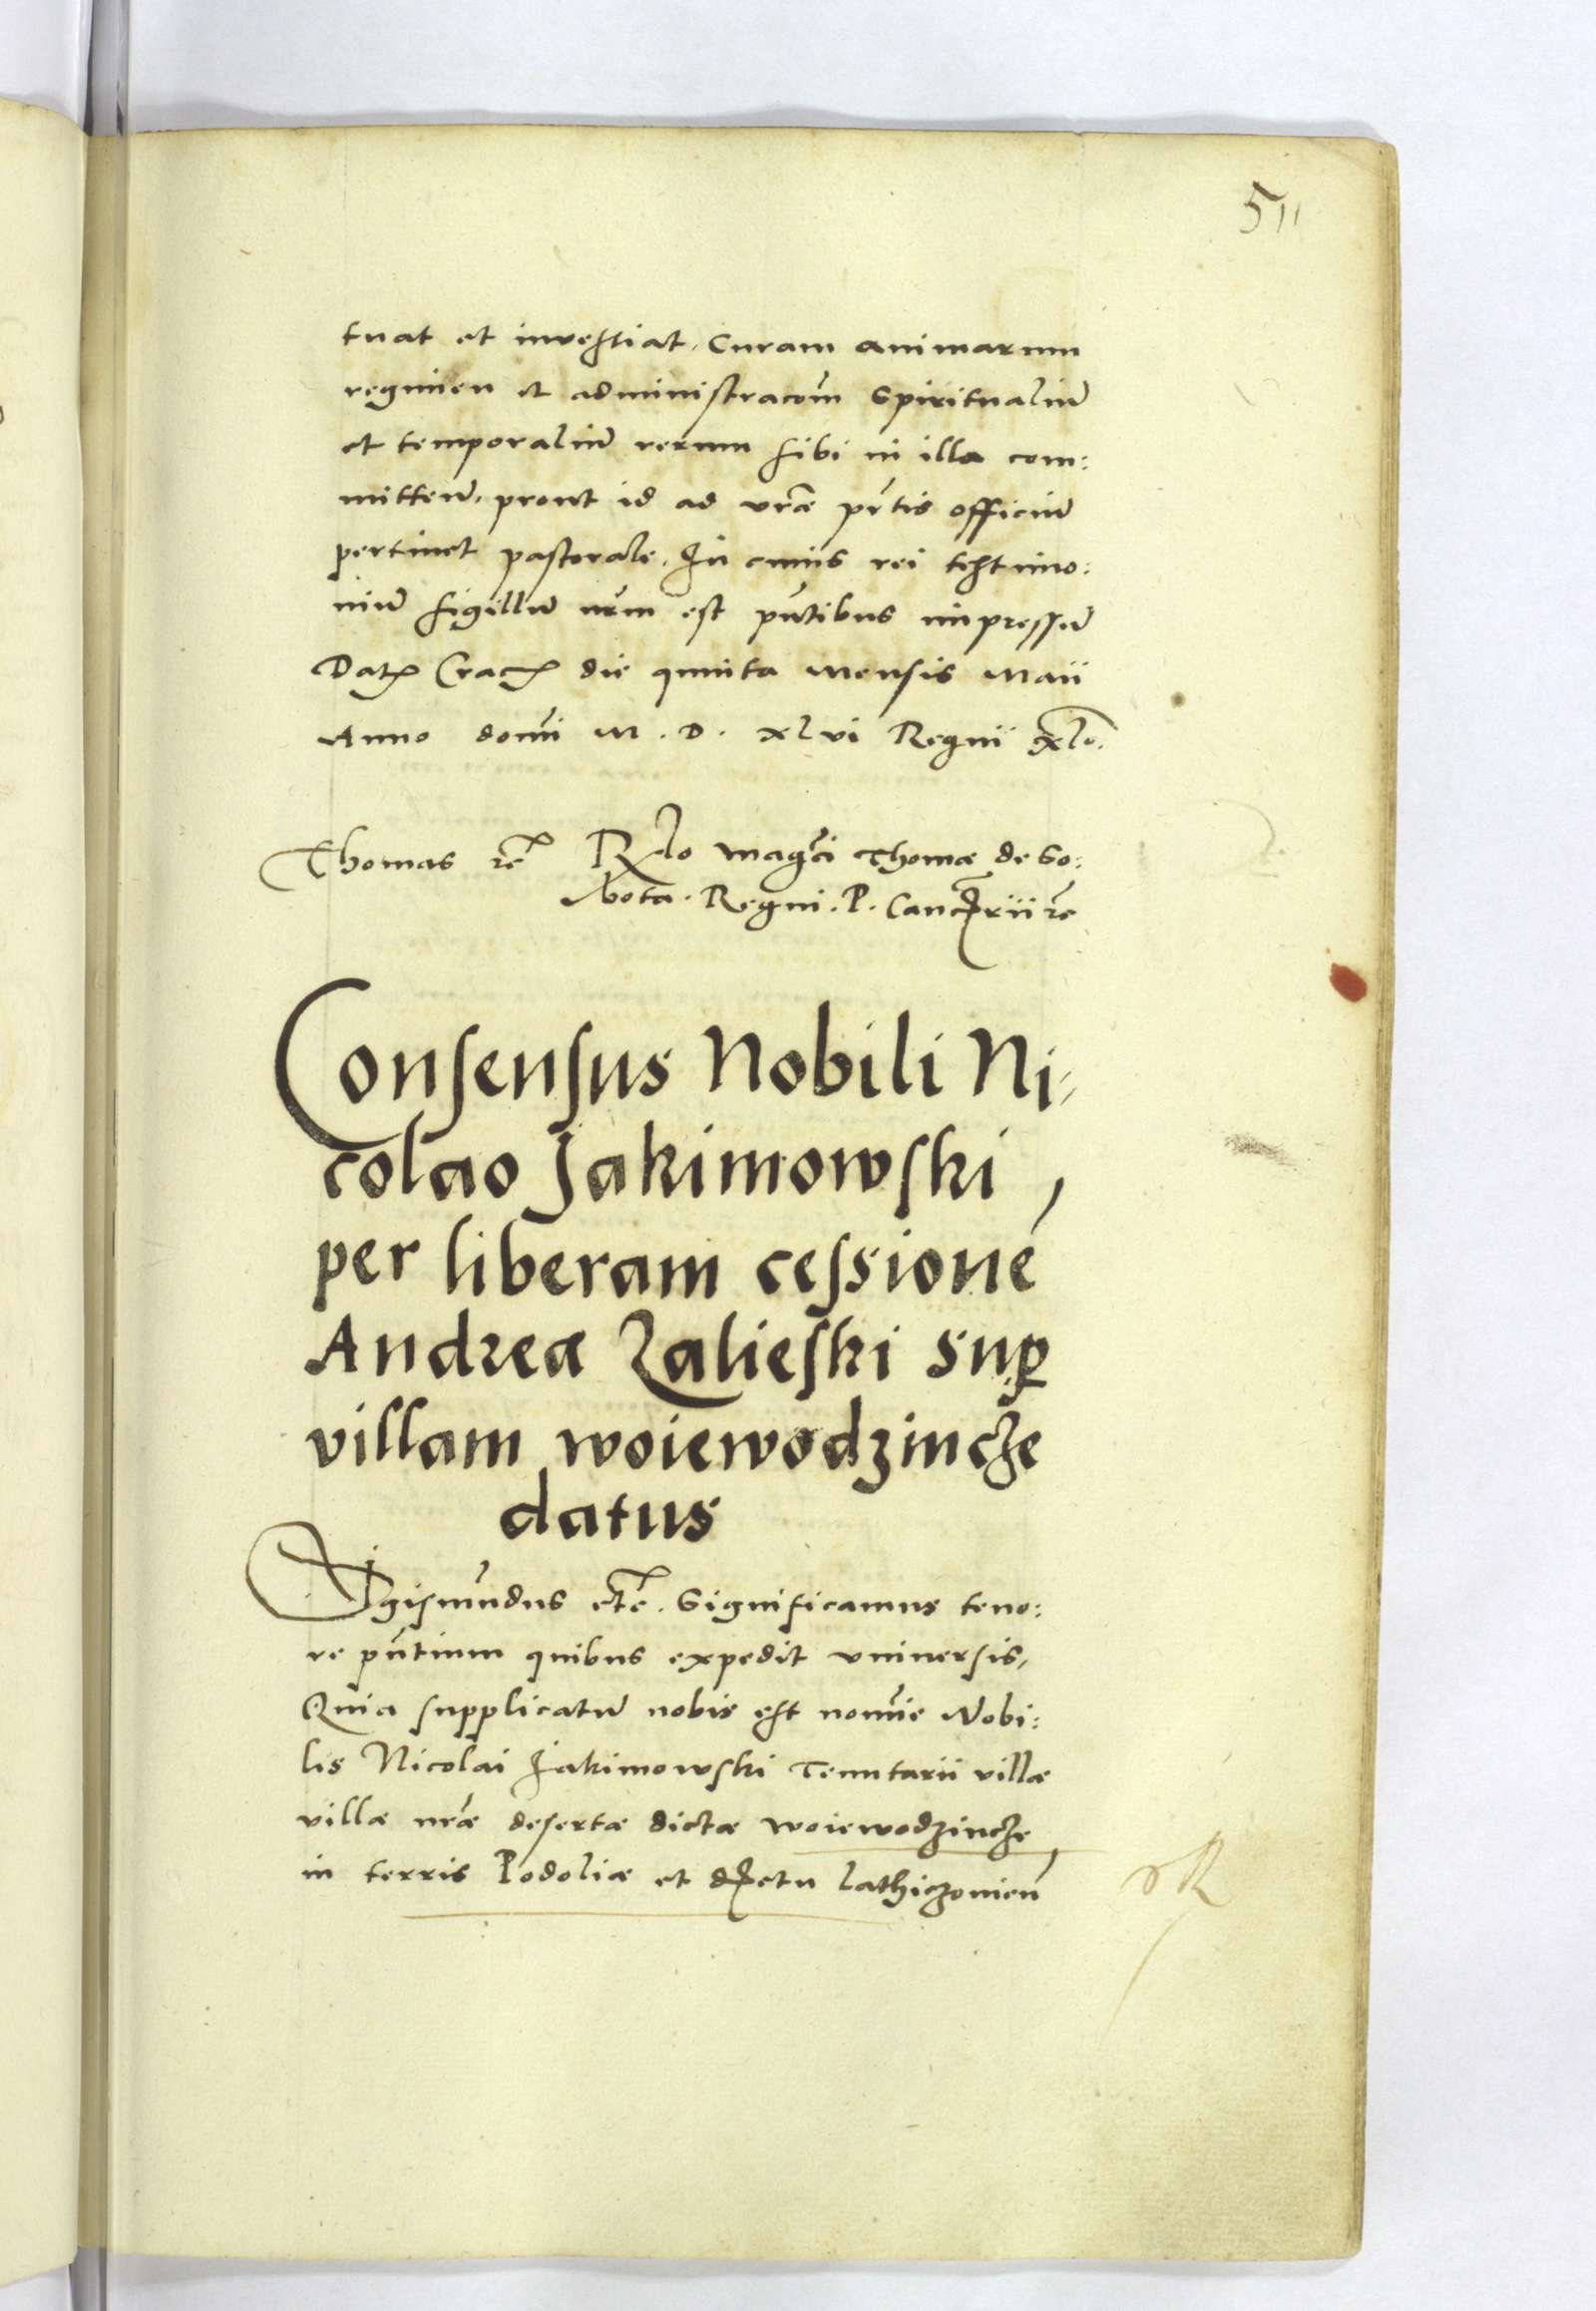 511
tuat et investiat, Curam animarum
regimen et administracoẽm Spiritualiũ
et temporaliũ rerum sibi in illa com:
mitteñ, prout id ad vr̃æ pr̃tis officiũ
pertinet pastorale. In cuius rei testimo:
niũ sigillũ nr̃m est pñtibus impressũ
Dat Crac die quinta mensis Maii
Anno domĩ M. D. xlvi Regni xlo.
Thomas rẽ Rlo mag̃ci Thomæ de So:
bota. Regni. P. Cancrii rẽ
Consensus Nobili Ni-
colao Jakimowski,
per liberam cessionẽ
Andreæ Zalieski sup
villam woiewodzincze
datus
Sigismũdus etc̃. Significamus teno:
re pñtium quibus expedit vniuersis,
Quia supplicatũ nobis est nomĩe Nobi:
lis Nicolai Jakimowski Tenutarii villæ
villæ nr̃æ desertæ dictæ woiewodzincze,
in terris Podoliæ et dictu Lathiczonieñ